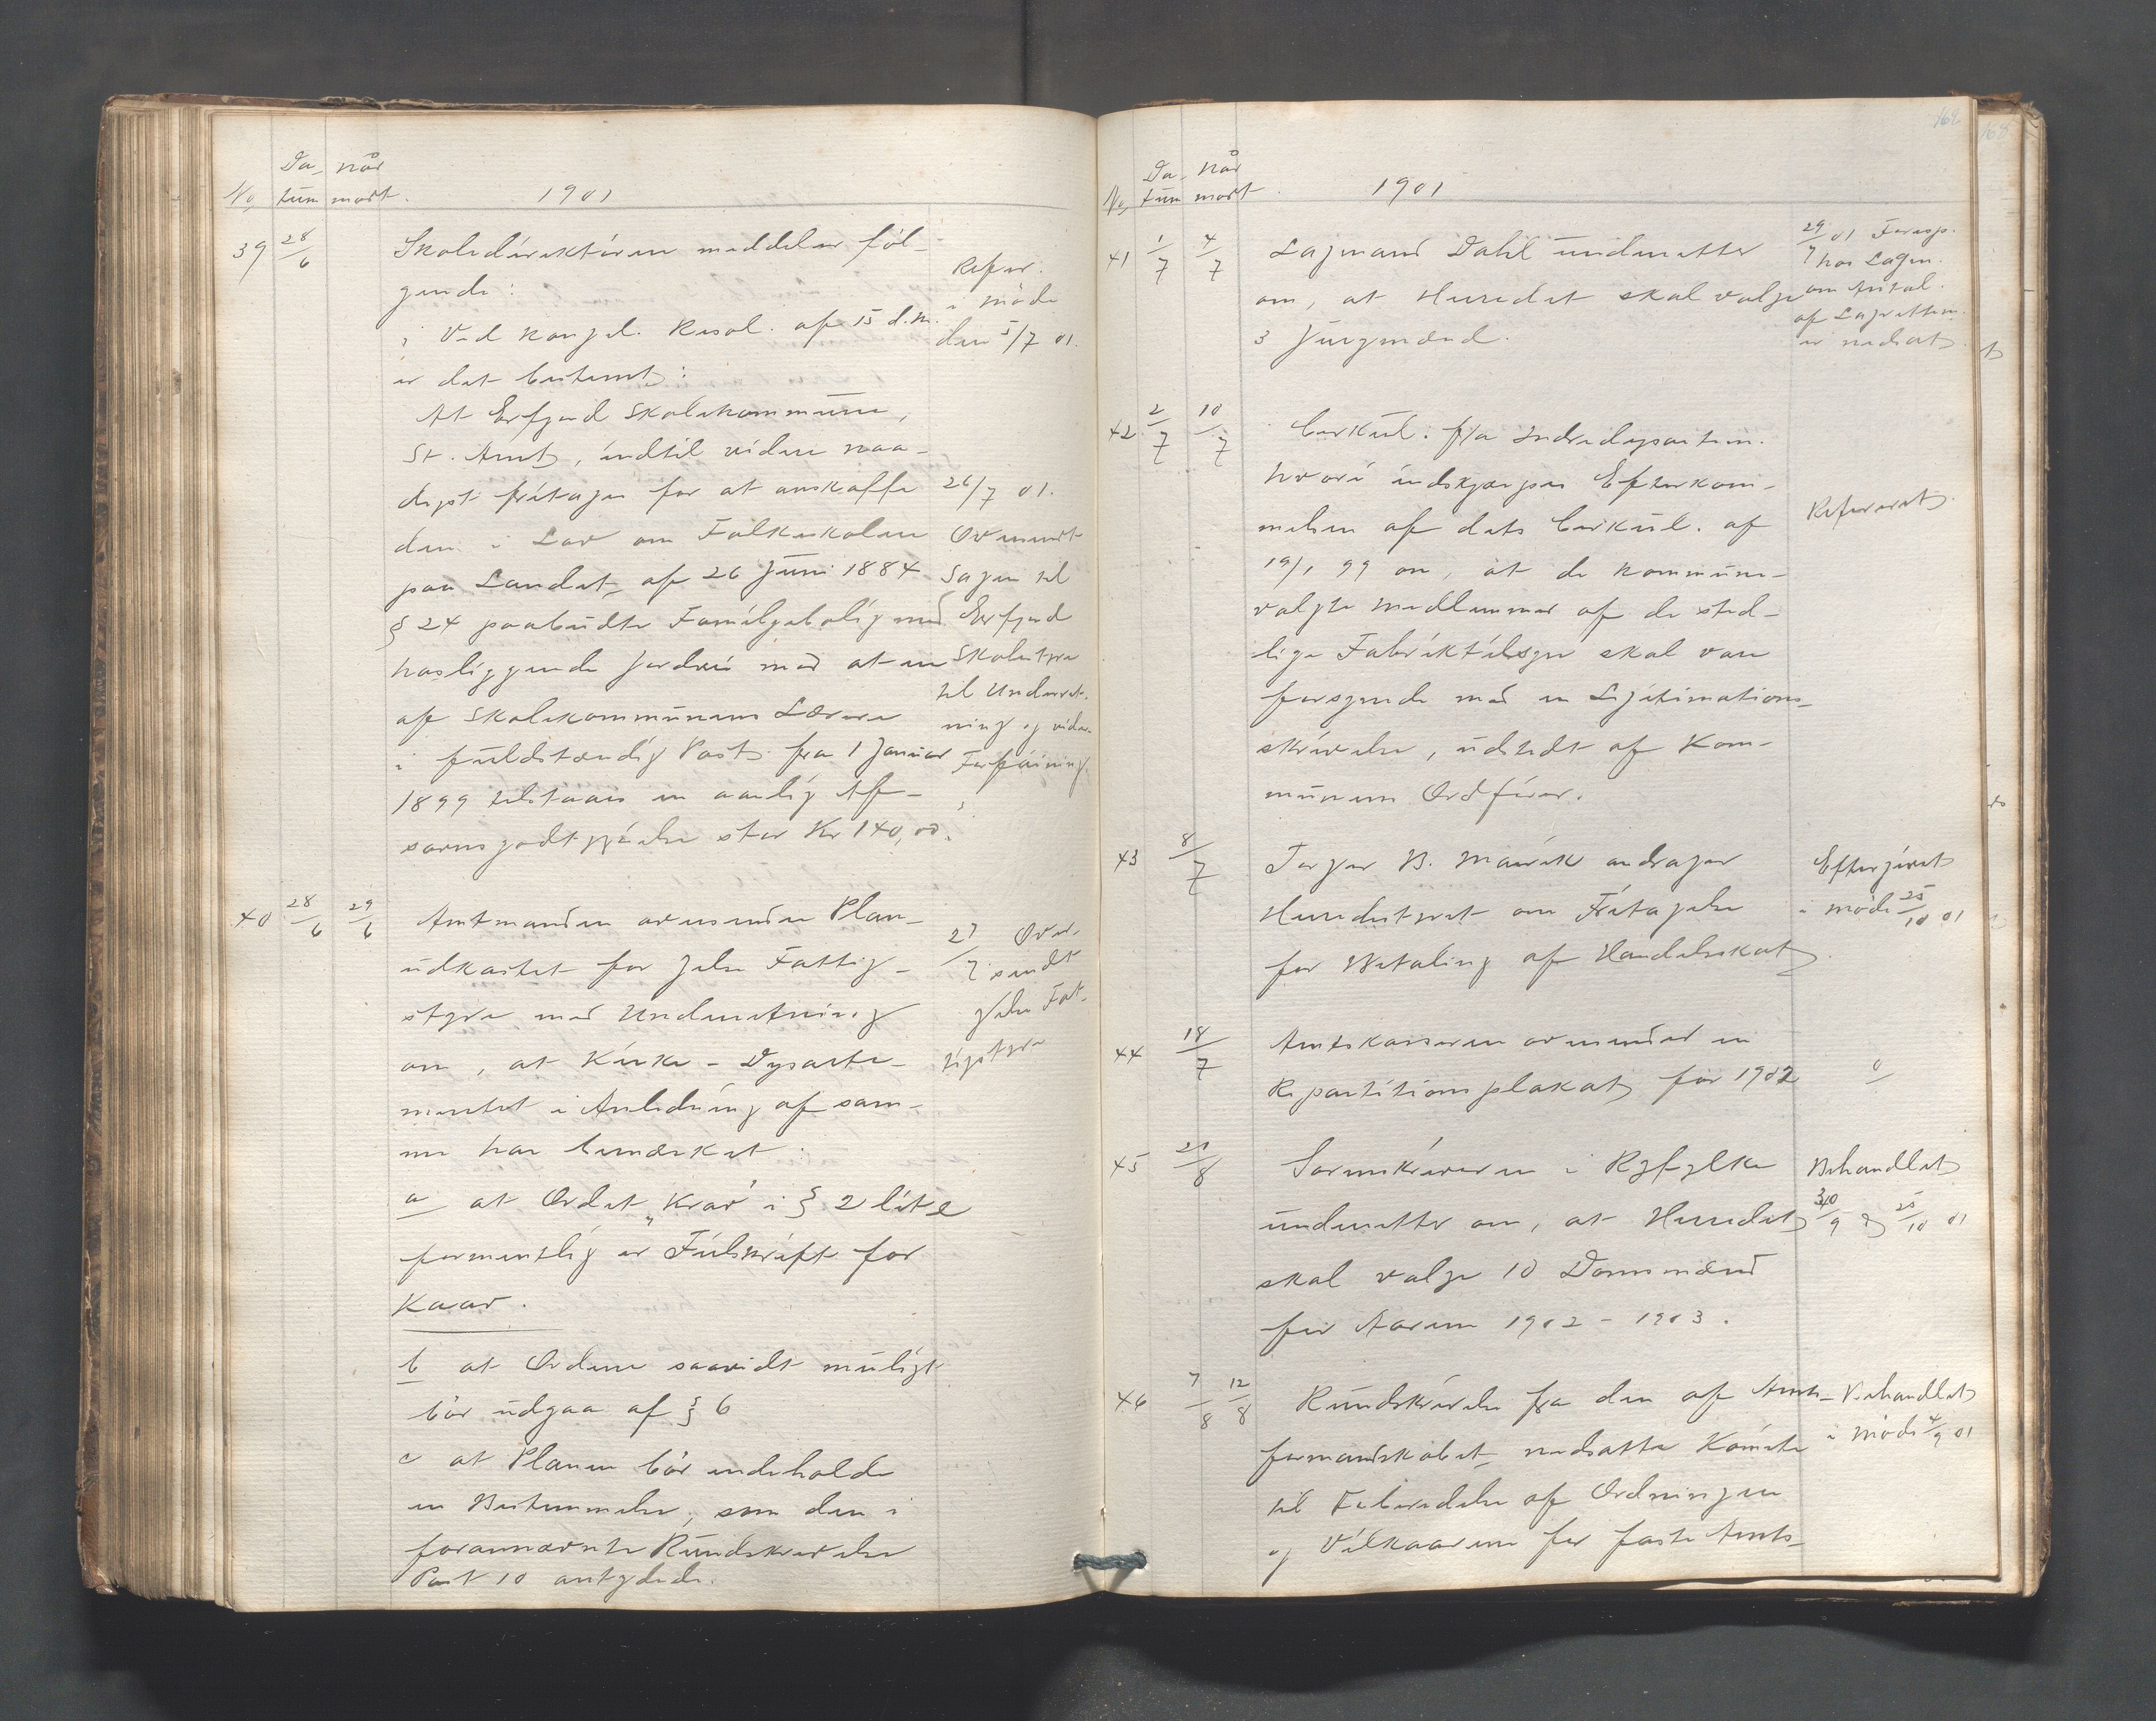 Da- når
No, tum modt. 1901
39 28/6 Skoledirektøren meddeler føl-
gende:
Ved kongel. Resol. af 15 d.M.
er det bestemt:
At Erfjord Skolekommune,
St. Amt, indtil videre naa-
digst fritages for at anskaffe
den i Lov om Folkeskolen
paa Landet af 26 Juni 1889
§ 24 paabudte Familjebolig med
hosliggende Jordvei mod at en
af Skolekommunens Lærere
i fuldstændig Post fra 1 Januar
1899 tilstaaes en aarlig Af-
savnsgodtgjørelse stor Kr 140,00.
Refer.
i møde
den 5/7 01.
26/7 01.
Oversendt
Sagen til
Erfjord
Skolestyre
til Underret-
ning og videre
Forføining.
40 28/6 29/6 Amtmanden oversender Plan-
udkastet for Jelse Fattig-
styre med Underretning
om, at Kirke-Departe-
mentet i Anledning af sam-
me har bemærket:
a at Ordet "Krav" i § 2 lit e
formentlig er Feilskrift for
Kaar.
b at Ordene saavidt muligt
bør udgaa af § 6
c at Planen bør indeholde
en Bestemmelse, som den i
forannævnte Rundskrivelse
Post 10 antydede.
27/7 Over-
sendt
Jelse Fat-
tigstyre
162
168
Da- Når
No, tum modt. 1901
41 1/7 4/7 Lagmand Dahl underretter
om, at Herredet skal vælge
3 Jurymænd.
29/7 01 Foresp.
hos Lagm.
om Antal.
af Lagrettem.
er nedsat
42 2/7 10/7 Cirkul. fra Indredepartem.
hvori indskjærpes Efterkom-
melsen af dets Cirkul. af
19/1 99 om, at de kommune-
valgte Medlemmer af de sted-
lige Fabriktilsyn skal være
forsynede med en Legitimations-
skrivelse, udstedt af Kom-
munens Ordfører.
Refereret
43 8/7 Torger B. Marvik andrager
Herredstyret om Fritagelse
for Betaling af Handelsskat
Eftergivet
i møde 25/10 01
44 18/7 Amtskassereren oversender en
Repartitionsplakat for 1902
"
45 21/8 Sorenskriveren i Ryfylke
underretter om, at Herredet
skal vælge 10 Domsmænd
for Aarene 1902 - 1903.
Behandlet
30/9 og 25/10 01
46 7/8 12/8 Rundskrivelse fra den af Amts-
formandskabet nedsatte Komite
til Forberedelse af Ordningen
og Vilkaarene for faste Amts-
Behandlet
i møde 4/9 01